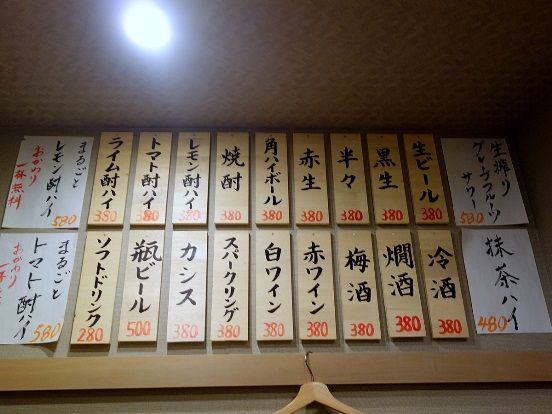 生搾り
グレープフルーツ
サワー
580
生ビール
380
黒生
380
半々
380
赤生
380
角ハイボール
380
焼酎
380
レモン酎ハイ
380
トマト酎ハイ
380
ライム酎ハイ
380
まるごと
レモン酎ハイ
おかわり
一杯無料
580
抹茶ハイ
480
冷酒
380
燗酒
380
梅酒
380
赤ワイン
380
白ワイン
380
スパークリング
380
カシス
380
瓶ビール
500
ソフトドリンク
280
まるごと
トマト酎ハイ
おかわり
580